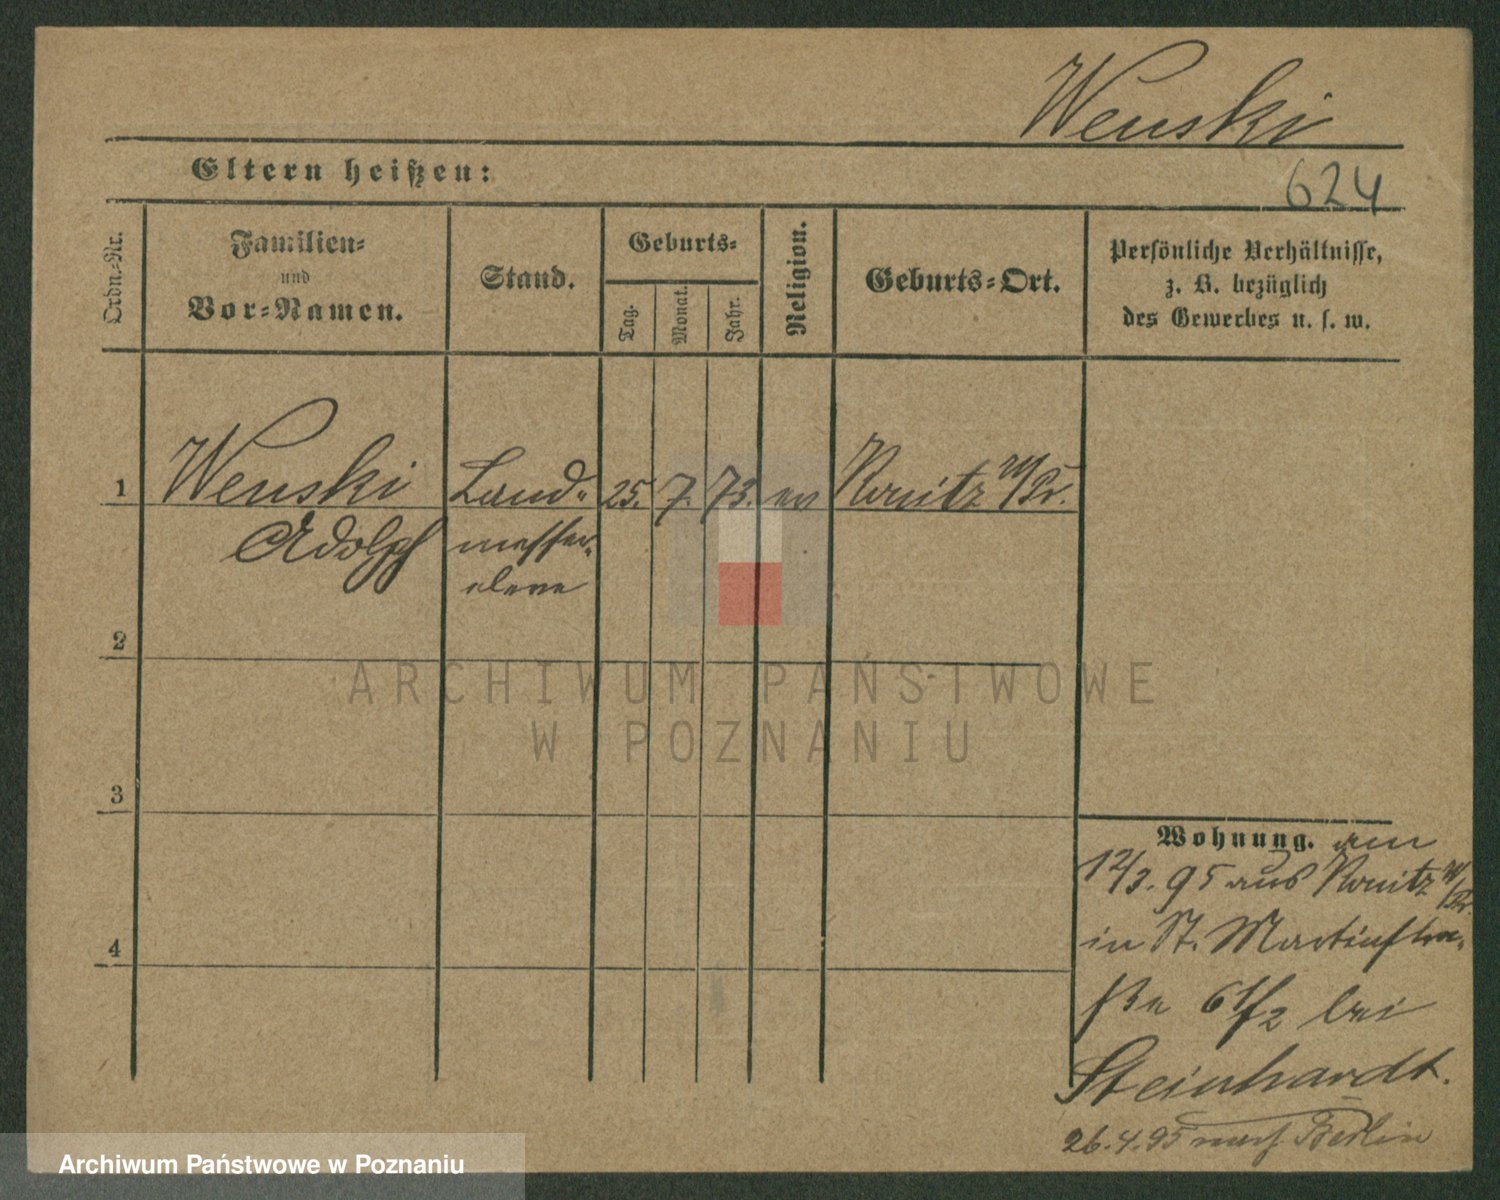 Wenski
Eltern heißen:
624
Ordn.-Nr.
Familien-
und
Vor-Namen.
Stand.
Geburts-
Tag.
Monat.
Jahr.
Religion.
Geburts-Ort.
Persönliche Verhältnisse,
z. B. bezüglich
des Gewerbes u. s. w.
1
Wenski
Adolph
Land-
messer-
eleve
25.
7.
73.
ev
Konitz W/Pr.
2
3
4
Wohnung. am
12/3. 95 aus Konitz W/Pr.
in St. Martinstra-
ße 61/2 bei
Steinhardt.
26.4.95 nach Berlin
ARCHIWUM PAŃSTWOWE
W POZNANIU
Archiwum Państwowe w Poznaniu